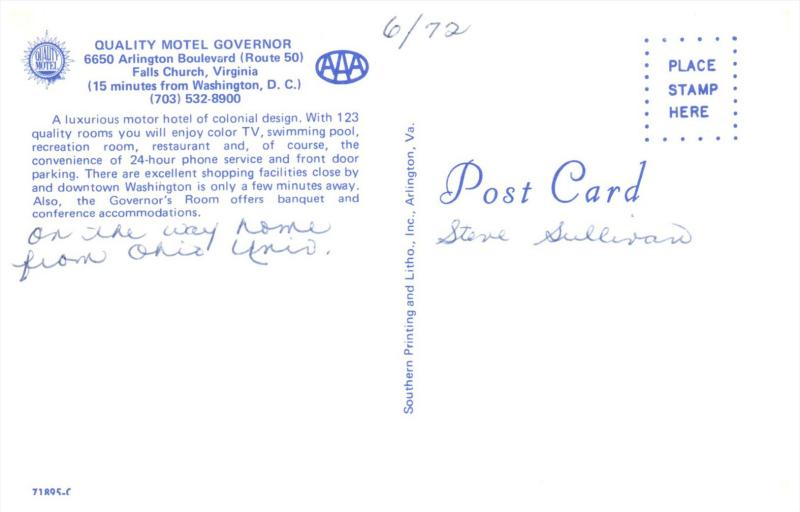 6/72
QUALITY MOTEL
QUALITY MOTEL GOVERNOR
6650 Arlington Boulevard (Route 50)
Falls Church, Virginia
(15 minutes from Washington, D. C.)
(703) 532-8900
AAA
A luxurious motor hotel of colonial design. With 123
quality rooms you will enjoy color TV, swimming pool,
recreation room, restaurant and, of course, the
convenience of 24-hour phone service and front door
parking. There are excellent shopping facilities close by
and downtown Washington is only a few minutes away.
Also, the Governor's Room offers banquet and
conference accommodations.
on the way home
from Ohio Univ.
71895-C
Southern Printing and Litho., Inc., Arlington, Va.
PLACE
STAMP
HERE
Post Card
Steve Sullivan